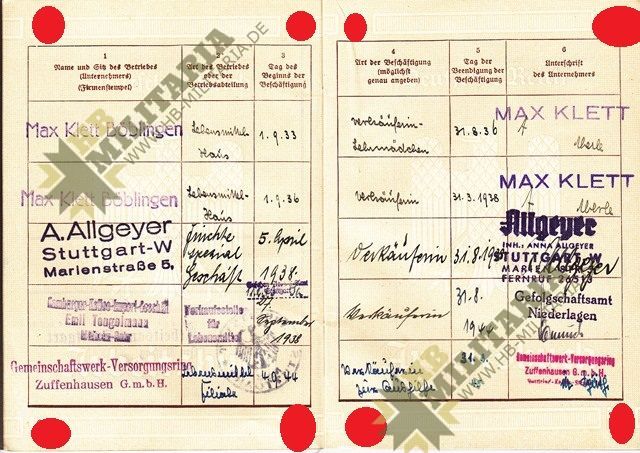 1
Name und Sitz des Betriebes
(Unternehmers)
(Firmenstempel)
2
Art des Betriebes
oder der
Betriebsabteilung
3
Tag des
Beginns der
Beschäftigung
4
Art der Beschäftigung
(möglichst
genau angeben)
5
Tag der
Beendigung der
Beschäftigung
6
Unterschrift
des Unternehmers
Max Klett Böblingen
Lebensmittel-
Haus
1.9.33
Verkäuferin-
Lehrmädchen
31.8.36
MAX KLETT
Max Klett Böblingen
Lebensmittel-
Haus
1.9.36
Verkäuferin
31.3.1938
MAX KLETT
A. Allgeyer
Stuttgart-W
Marienstraße 5,
Früchte
spezial
Geschäft
5. April
1938.
Verkäuferin
31.8.
Allgeyer
INH.: ANNA ALLGEYER
STUTTGART-W
FERNRUF 26513
Hamburger-Kaffee-Import-Geschäft
Emil Tengelmann
Verkaufsstelle
für
Lebensmittel
September
1938
Verkäuferin
31.8.
1944
Gefolgschaftsamt
Niederlagen
Gemeinschaftswerk-Versorgungsring
Zuffenhausen G.m.b.H.
Lebensmittel
Filiale
Verkäuferin
zur Aushilfe
31.3.
Gemeinschaftswerk-Versorgungsring
Zuffenhausen G.m.b.H.
HB
MILITARIA
WWW.HB-MILITARIA.DE
HB
MILITARIA
WWW.HB-MILITARIA.DE